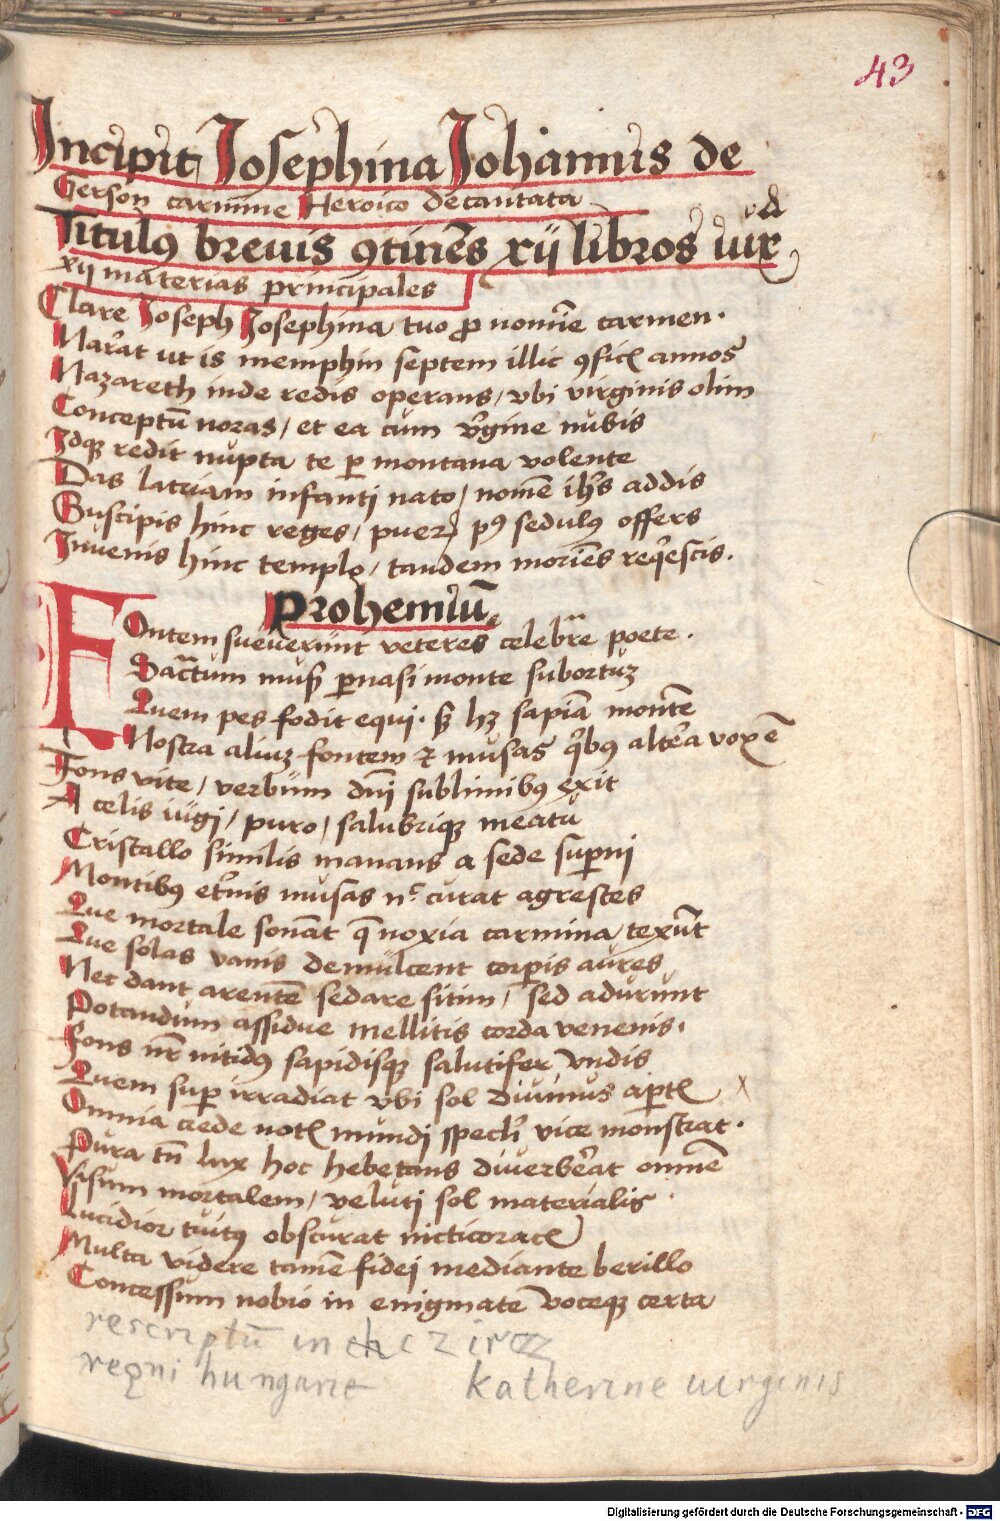 43
Incipit Josephina Johannis de
Gerson carmine Heroico decantata
Titulꝯ brevis ꝯtinēs xij libros iux
d
xij materias principales
Clare Joseph Josephina tuo ꝓ nomīe carmen.
Narat ut is memphin septem illic ꝯficꝭ annos
Nazareth inde redis operans / vbi virginis olim
Conceptū noras / et ea cum vgine nubis
Idqꝫ redit nupta te ꝑ montana volente
Das latriam infanti nato / nomē ihs addis
Suscipis hinc reges / puerꝫ pꝯ sedulꝯ offers
Invenis hinc templo / tandem moriēs reqescis.
Prohemiū
FOntem sueuerunt veteres celebrare poete.
Quem pes fodit equi. sꝫ hꝫ sapīa montē
Nostra aliuꝫ fontem ⁊ musas qibꝯ altera vox ē
Fons vite / verbum dnī sublimibꝯ exit
A celis iugi / puro / salubriqꝫ meatu
Cristallo similis manans a sede suꝑni
Montibꝯ etnis musas nc curat agrestes
Que mortale sonāt q noxia carmina texūt
Que solas vanis demulcent corꝑis aures
Nec dant arentē sedare sitim / sed adurunt
Potandum assidue mellitis corda venenis.
Fons nr nitidꝯ sapidisqꝫ salutifer vndis
Quem suꝑ irradiat vbi sol divinus aꝑtꝭ x
Omnia crede notꝭ mundi specli vice monstrat.
Pura tn lux hoc hebetans diverberat omnē
Visum mortalem / veluti sol materialis.
Lucidior tuitꝯ obscurat nicticoracꝭ
Multa videre tamē fidei mediante berillo
Concessum nobis in enigmate voceqꝫ certa
rescriptū in
regni hungarie katherine uirginis
Digitalisierung gefördert durch die Deutsche Forschungsgemeinschaft - DFG